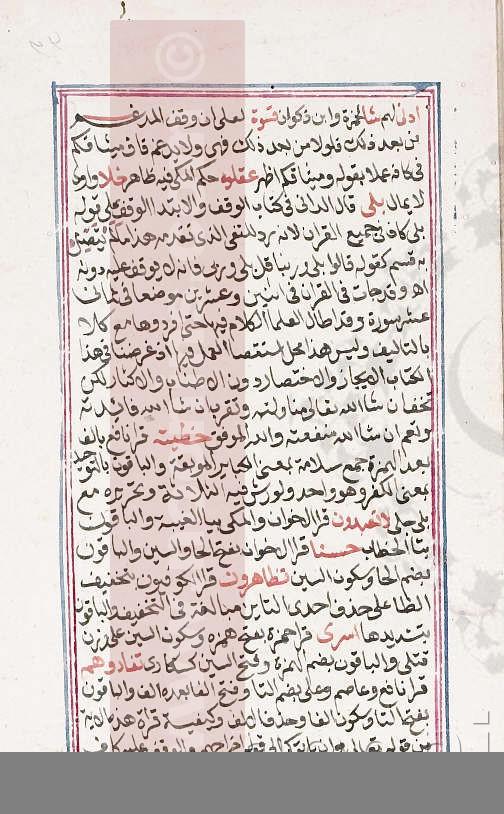 ادنى لهم شا لحمزة وابن ذكوان قسوة لعلى ان وقف المدغم
من بعد ذلك قلولا من بعد ذلك فهى ولا يدغم قاف ميثاقكم
فى كاف عملا بقوله وميثاقكم اظهر عقلوه حكم المكى فيه ظاهر خلا واوى
لا يمال بلى قال الدانى فى كتاب الوقف والابتدا الوقف على قوله
بلى كاف فى جميع القران لانه رد للنفى الذى تقدمه هذا ما لم يتصل
به قسم كقوله قالوا بلى وربنا قل بلى وربى فانه لا يوقف عليه دونه
اه وقد جات فى القران فى اثنين وعشرين موضعا فى ثمان
عشر سورة وقد اطال العلما الكلام فيها حتى افردوها مع كلا
بالتاليف وليس هذا محل استقصا العمل فيها اذ غرضنا فى هذا
الكتاب الايجاز والاختصار دون الاطناب والاكثار لكن
تخف ان شا الله تعالى مناولته وتقرب ان شا الله فائدته
وتعم ان شا الله منفعته والله الموفق خطيئته قرا نافع بالف
بعد الهمزة جمع سلامة بمعنى الكباير الموبقة والباقون بالتوحيد
بمعنى الكفر وهو واحد ولورش فيه الثلاثة وتحريره مع
بلى جلى لا تعبدون قرا الاخوان والمكى بيا الغيب والباقون
بتا الخطاب حسنا قرا الاخوان بفتح الحا والسين والباقون
بضم الحا وسكون السين تظاهرون قرا الكوفيون بتخفيف
الظا على حذف احدى التاين مبالغة فى التخفيف والباقون
بتشديدها اسرى قرا حمزة بفتح الهمزة وسكون السين على وزن
قتلى والباقون بضم الهمزة وفتح السين كسكارى تفادوهم
قرا نافع وعاصم وعلى بضم التا وفتح الفا بعده الف والباقون
بفتح التا وسكون الفا وحذف الالف وكيفية قراة هذه الاية
من قوله تعالى وان ياتوكم الى قوله اخراجهم والوقف عليه كاف